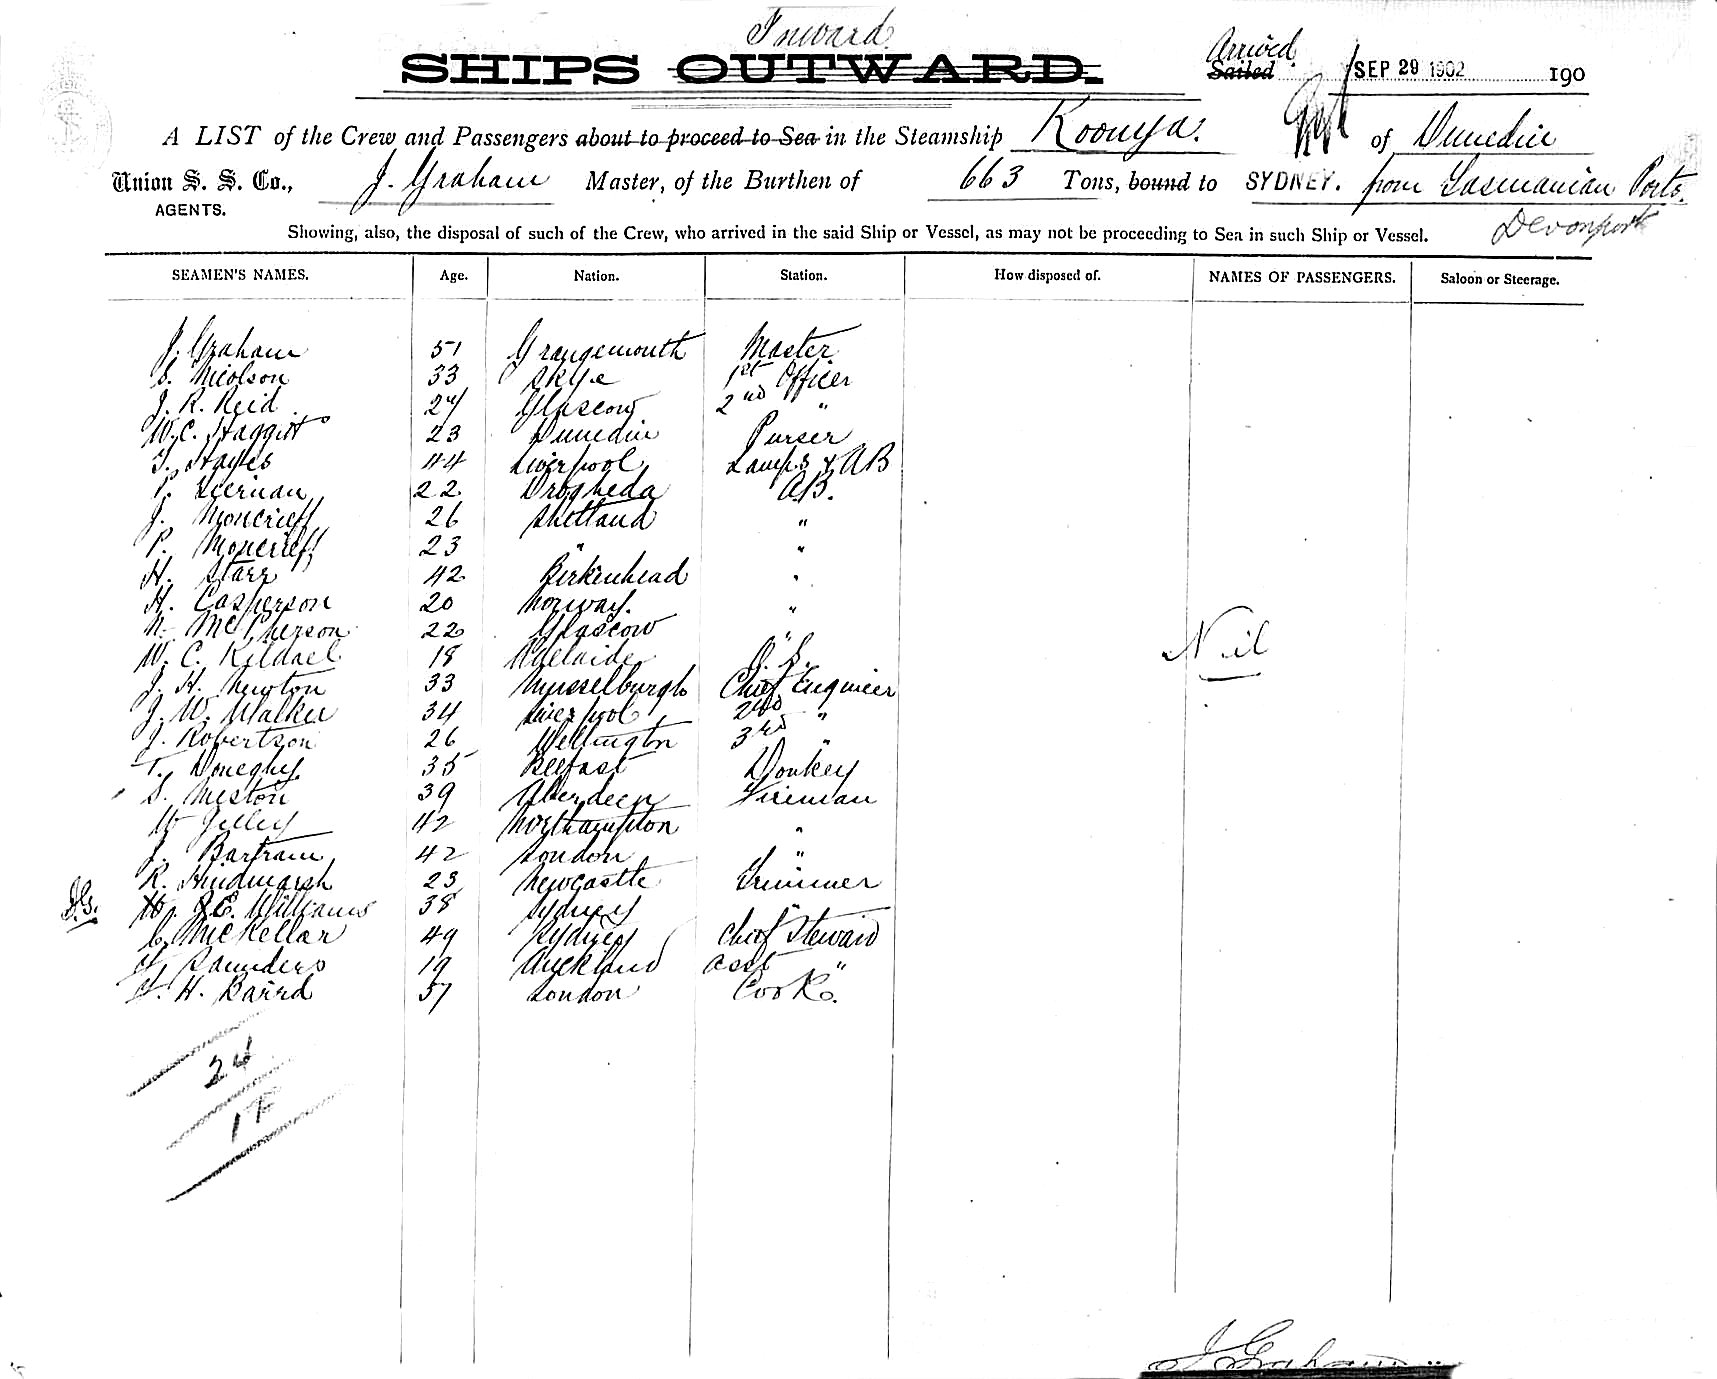 Inward
SHIPS OUTWARD.
Arrived
Sailed SEP 29 1902 190
A LIST of the Crew and Passengers about to proceed to Sea in the Steamship Koonya. of Dunedin
Union S. S. Co., J. Graham Master, of the Burthen of 663 Tons, bound to SYDNEY. from Tasmanian Ports.
AGENTS.
Devonport
Showing, also, the disposal of such of the Crew, who arrived in the said Ship or Vessel, as may not be proceeding to Sea in such Ship or Vessel.
SEAMEN'S NAMES. Age. Nation. Station. How disposed of. NAMES OF PASSENGERS. Saloon or Steerage.
J. Graham 51 Grangemouth Master
S. Nicolson 33 Skye 1st Officer
J. R. Reid 24 Glascow 2nd "
W. C. Haggitt 23 Dunedin Purser
T. Hayes 44 Liverpool Lamps & AB
P. Kiernan 22 Drogheda A.B.
J. Moncrieff 26 Shetland "
P. Moncrieff 23 " "
H. Starr 42 Birkenhead "
H. Casperson 20 Norway. "
N. McPherson 22 Glascow "
W. C. Kildael 18 Adelaide O. S.
J. H. Newton 33 Musselburgh Chief Engineer
J. W. Walker 34 Liverpool 2nd "
J. Robertson 26 Wellington 3rd "
T. Doneghy 35 Belfast Donkey
S. Meston 39 Aberdeen Fireman
W Jelley 42 Northampton "
J. Bartram 42 London "
R. Hindmarsh 23 Newcastle Trimmer
J.G. J.E. Williams 38 Sydney "
C. McKellar 49 Sydney Chief Steward
Saunders 19 Auckland asst "
H. Baird 37 London Cook.
Nil
24
1F
J Graham